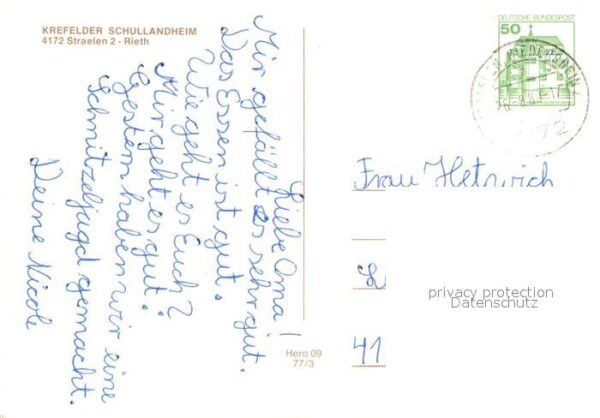 KREFELDER SCHULLANDHEIM
4172 Straelen 2 - Rieth
Liebe Oma!
Mir gefällt es sehr gut.
Das Essen ist gut.
Wie geht es Euch?
Mir geht es gut.
Gestern haben wir eine
Schnitzeljagd gemacht.
Deine Nicole
Hero 09
77/3
DEUTSCHE BUNDESPOST
50
4172
Frau Hetnrich
41
privacy protection
Datenschutz